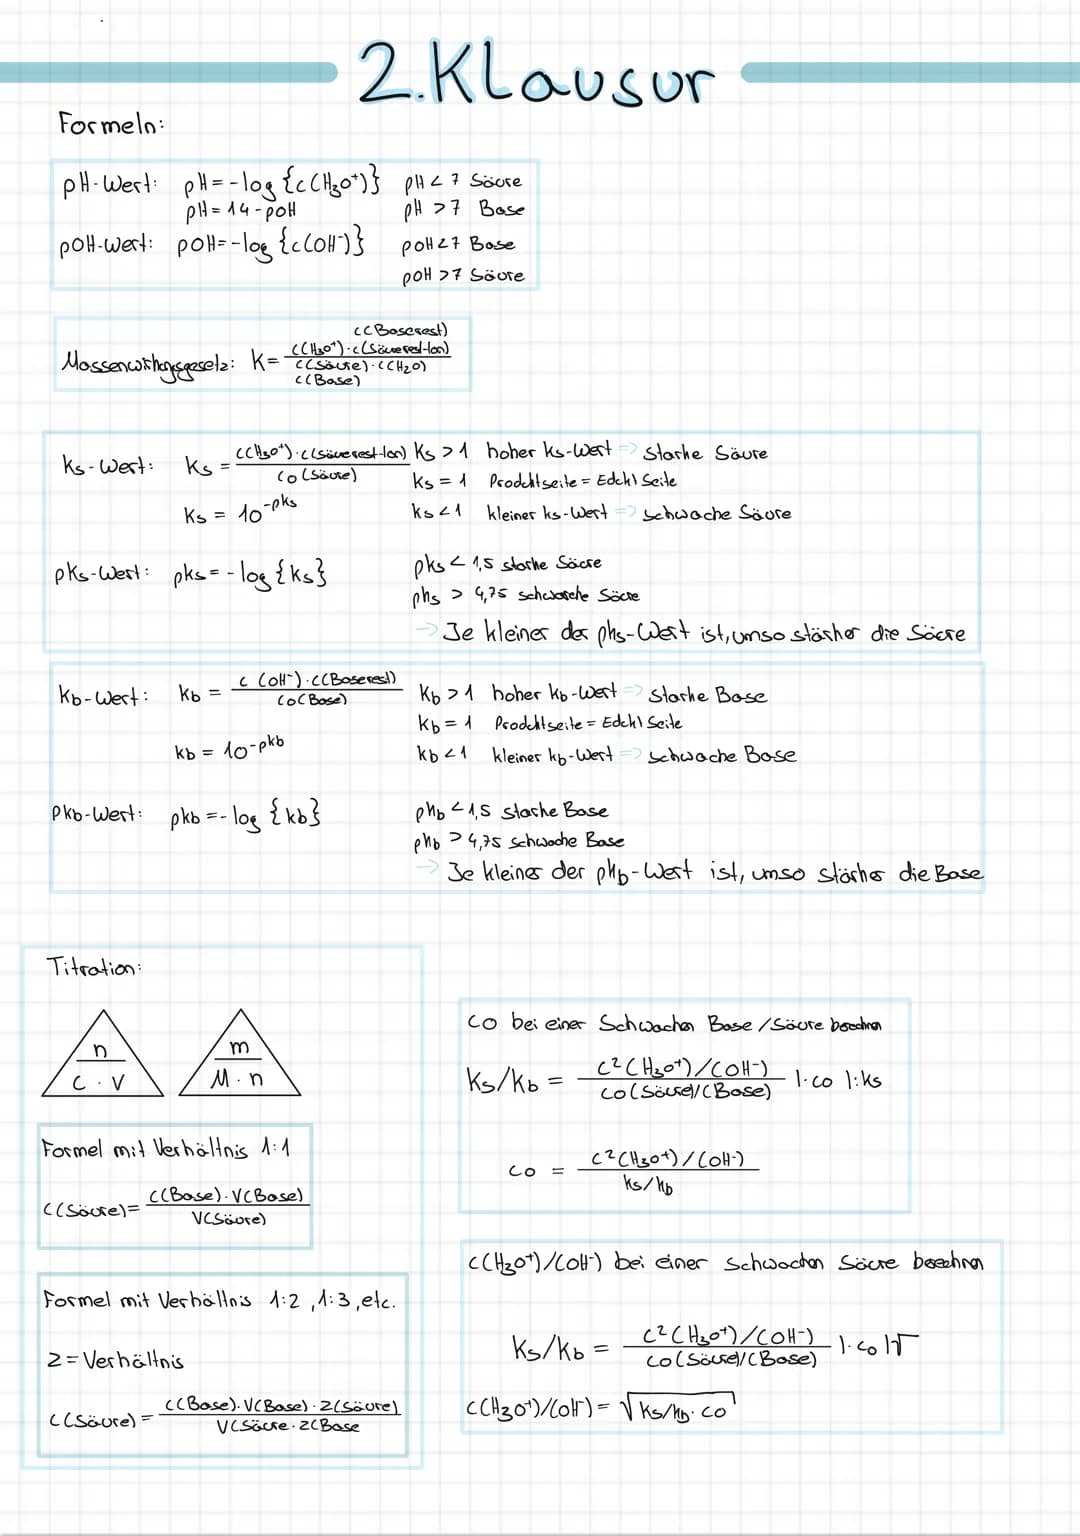 2.Klausur
Formeln:
pH-Wert: pH = -log {c(H₃O⁺)} pH < 7 Säure
pH = 14 - pOH pH > 7 Base
pOH-Wert: pOH = -log {c(OH⁻)} pOH < 7 Base
pOH > 7 Säure
c(Baserest)
Massenwirkungsgesetz: K = c(H₃O⁺)·c(Säurerest-Ion) / c(Säure)·c(H₂O)
c(Base)
Ks-Wert: Ks = c(H₃O⁺)·c(Säurerest-Ion) / c₀(Säure) Ks > 1 hoher Ks-Wert => Starke Säure
Ks = 1 Produktseite = Edukt Seite
Ks = 10^-pks Ks < 1 kleiner ks-Wert => schwache Säure
pKs-Wert: pks = -log {ks} pks < 1,5 starke Säure
pks > 4,75 schwache Säure
-> Je kleiner der pks-Wert ist, umso stärker die Säure
Kb-Wert: Kb = c(OH⁻)·c(Baserest) / c₀(Base) Kb > 1 hoher Kb-Wert => Starke Base
Kb = 1 Produktseite = Edukt Seite
kb = 10^-pkb kb < 1 kleiner kb-Wert => schwache Base
pKb-Wert: pkb = -log {kb} pkb < 1,5 starke Base
pkb > 4,75 schwache Base
-> Je kleiner der pkb-Wert ist, umso stärker die Base
Titration:
n
c · V
m
M · n
Formel mit Verhältnis 1:1
c(Säure) = c(Base)·V(Base) / V(Säure)
Formel mit Verhältnis 1:2, 1:3, etc.
Z = Verhältnis
c(Säure) = c(Base)·V(Base)·Z(Säure) / V(Säure·Z(Base
c₀ bei einer Schwachen Base / Säure berechnen
Ks/Kb = c²(H₃O⁺)/(OH⁻) / c₀(Säure)/(Base) |·c₀ |:Ks
c₀ = c²(H₃O⁺)/(OH⁻) / ks/kb
c(H₃O⁺)/(OH⁻) bei einer Schwachen Säure berechnen
Ks/Kb = c²(H₃O⁺)/(OH⁻) / c₀(Säure)/(Base) |·c₀ |√
c(H₃O⁺)/(OH⁻) = √Ks/Kb·c₀